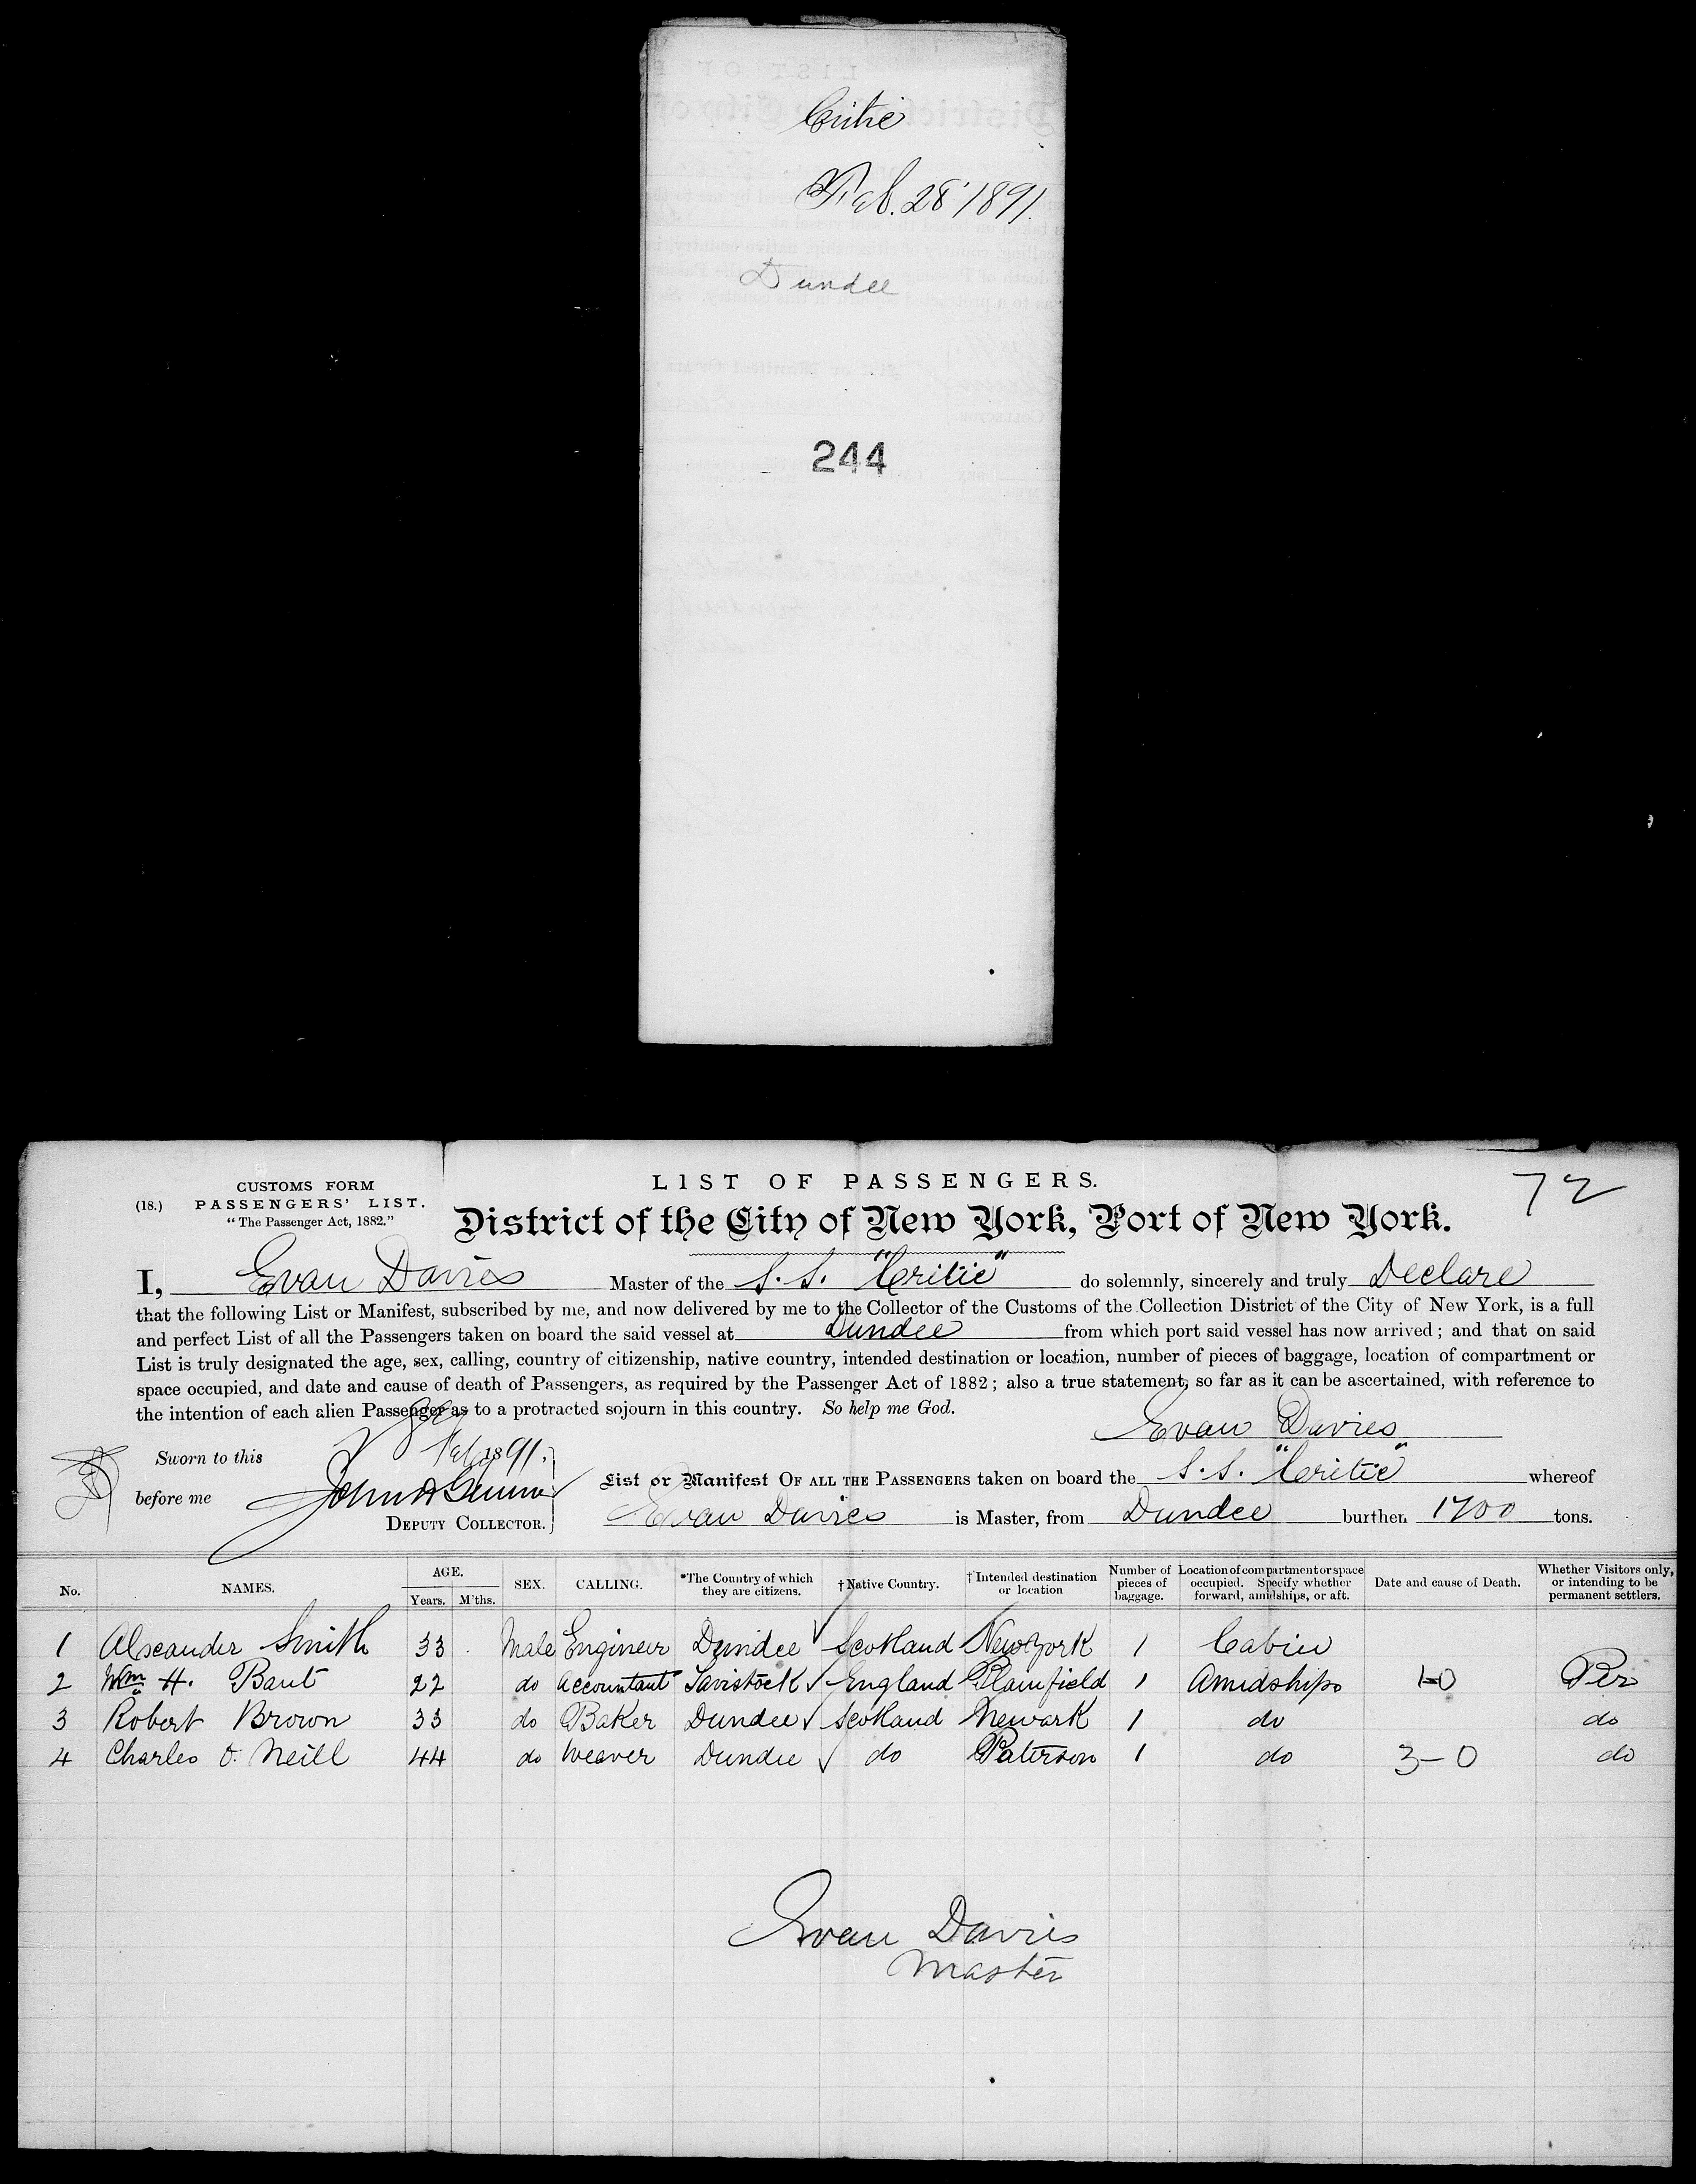 Critic
Feb. 28 1891.
Dundee
244
72
CUSTOMS FORM
(18.) PASSENGERS' LIST.
"The Passenger Act, 1882."
LIST OF PASSENGERS.
District of the City of New York, Port of New York.
I, Evan Davies Master of the S. S. "Critic" do solemnly, sincerely and truly Declare
that the following List or Manifest, subscribed by me, and now delivered by me to the Collector of the Customs of the Collection District of the City of New York, is a full
and perfect List of all the Passengers taken on board the said vessel at Dundee from which port said vessel has now arrived; and that on said
List is truly designated the age, sex, calling, country of citizenship, native country, intended destination or location, number of pieces of baggage, location of compartment or
space occupied, and date and cause of death of Passengers, as required by the Passenger Act of 1882; also a true statement, so far as it can be ascertained, with reference to
the intention of each alien Passenger as to a protracted sojourn in this country. So help me God.
Evan Davies
Sworn to this 28 Feb 1891.
before me John A Gunn
DEPUTY COLLECTOR.
List or Manifest OF ALL THE PASSENGERS taken on board the S. S. "Critic" whereof
Evan Davies is Master, from Dundee burthen 1700 tons.
No. NAMES. AGE. Years. M'ths. SEX. CALLING. *The Country of which they are citizens. †Native Country. †Intended destination or location Number of pieces of baggage. Location of compartment or space occupied. Specify whether forward, amidships, or aft. Date and cause of Death. Whether Visitors only, or intending to be permanent settlers.
1 Alexander Smith 33 Male Engineer Dundee Scotland New York 1 Cabin
2 Wm H. Bant 22 do Accountant Tavistock England Plainfield 1 Amidships 1-0 Per
3 Robert Brown 33 do Baker Dundee Scotland Newark 1 do do
4 Charles O. Neill 44 do Weaver Dundee do Paterson 1 do 3-0 do
Evan Davies
Master